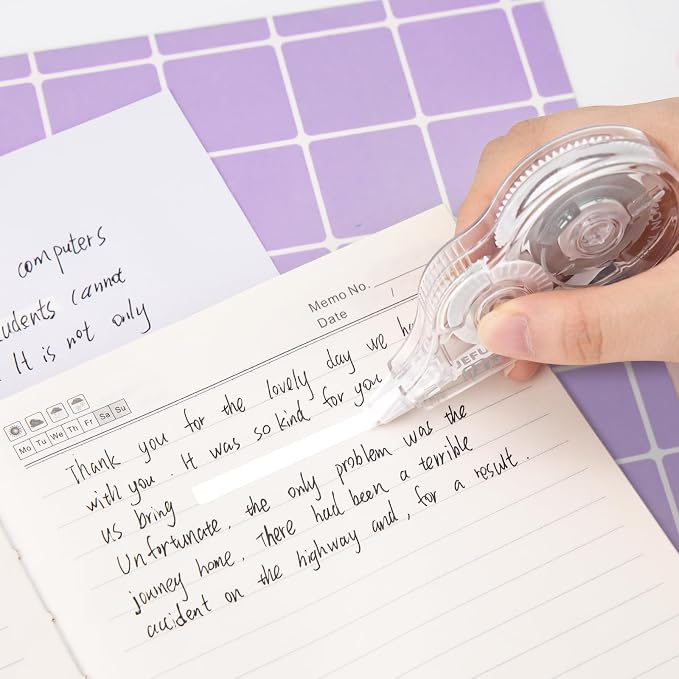 computers
students cannot
It is not only
Memo No.
Date /
Mo Tu We Th Fr Sa Su
Thank you for the lovely day we
with you. It was so kind for you
us bring
Unfortunate, the only problem was the
journey home. There had been a terrible
accident on the highway and, for a result.
JEFU